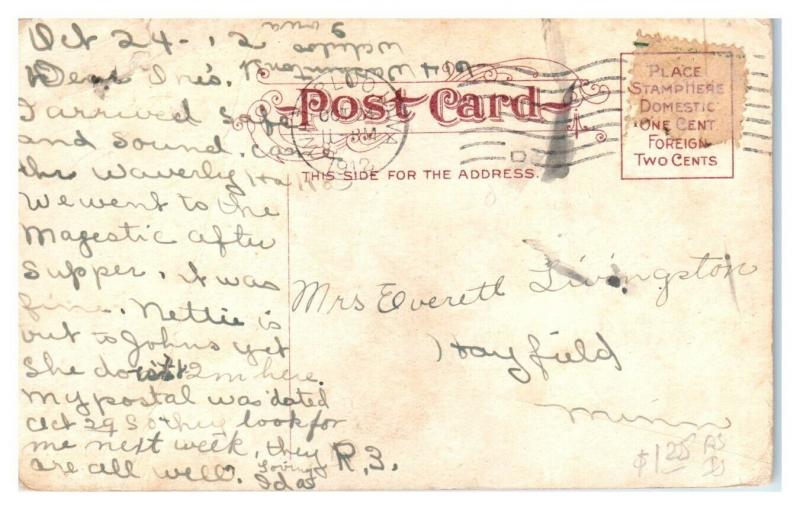 Oct 24-12
Dear Ones.
I arrived safe
and Sound. Came
thr Waverly
We went to the
Magestic after
Supper, it was
fine. Nettie is
out to Johns yet
She do 12m here.
My postal was dated
Oct 29 So they look for
me next week, they
are all well. Loving
Ida
417 Washington
Iowa
Post Card
THIS SIDE FOR THE ADDRESS.
1912
PLACE
STAMP HERE
DOMESTIC
ONE CENT
FOREIGN
TWO CENTS
Mrs Everett Livingston
Hayfield
Minn
R.3.
$1.25 AS
IS